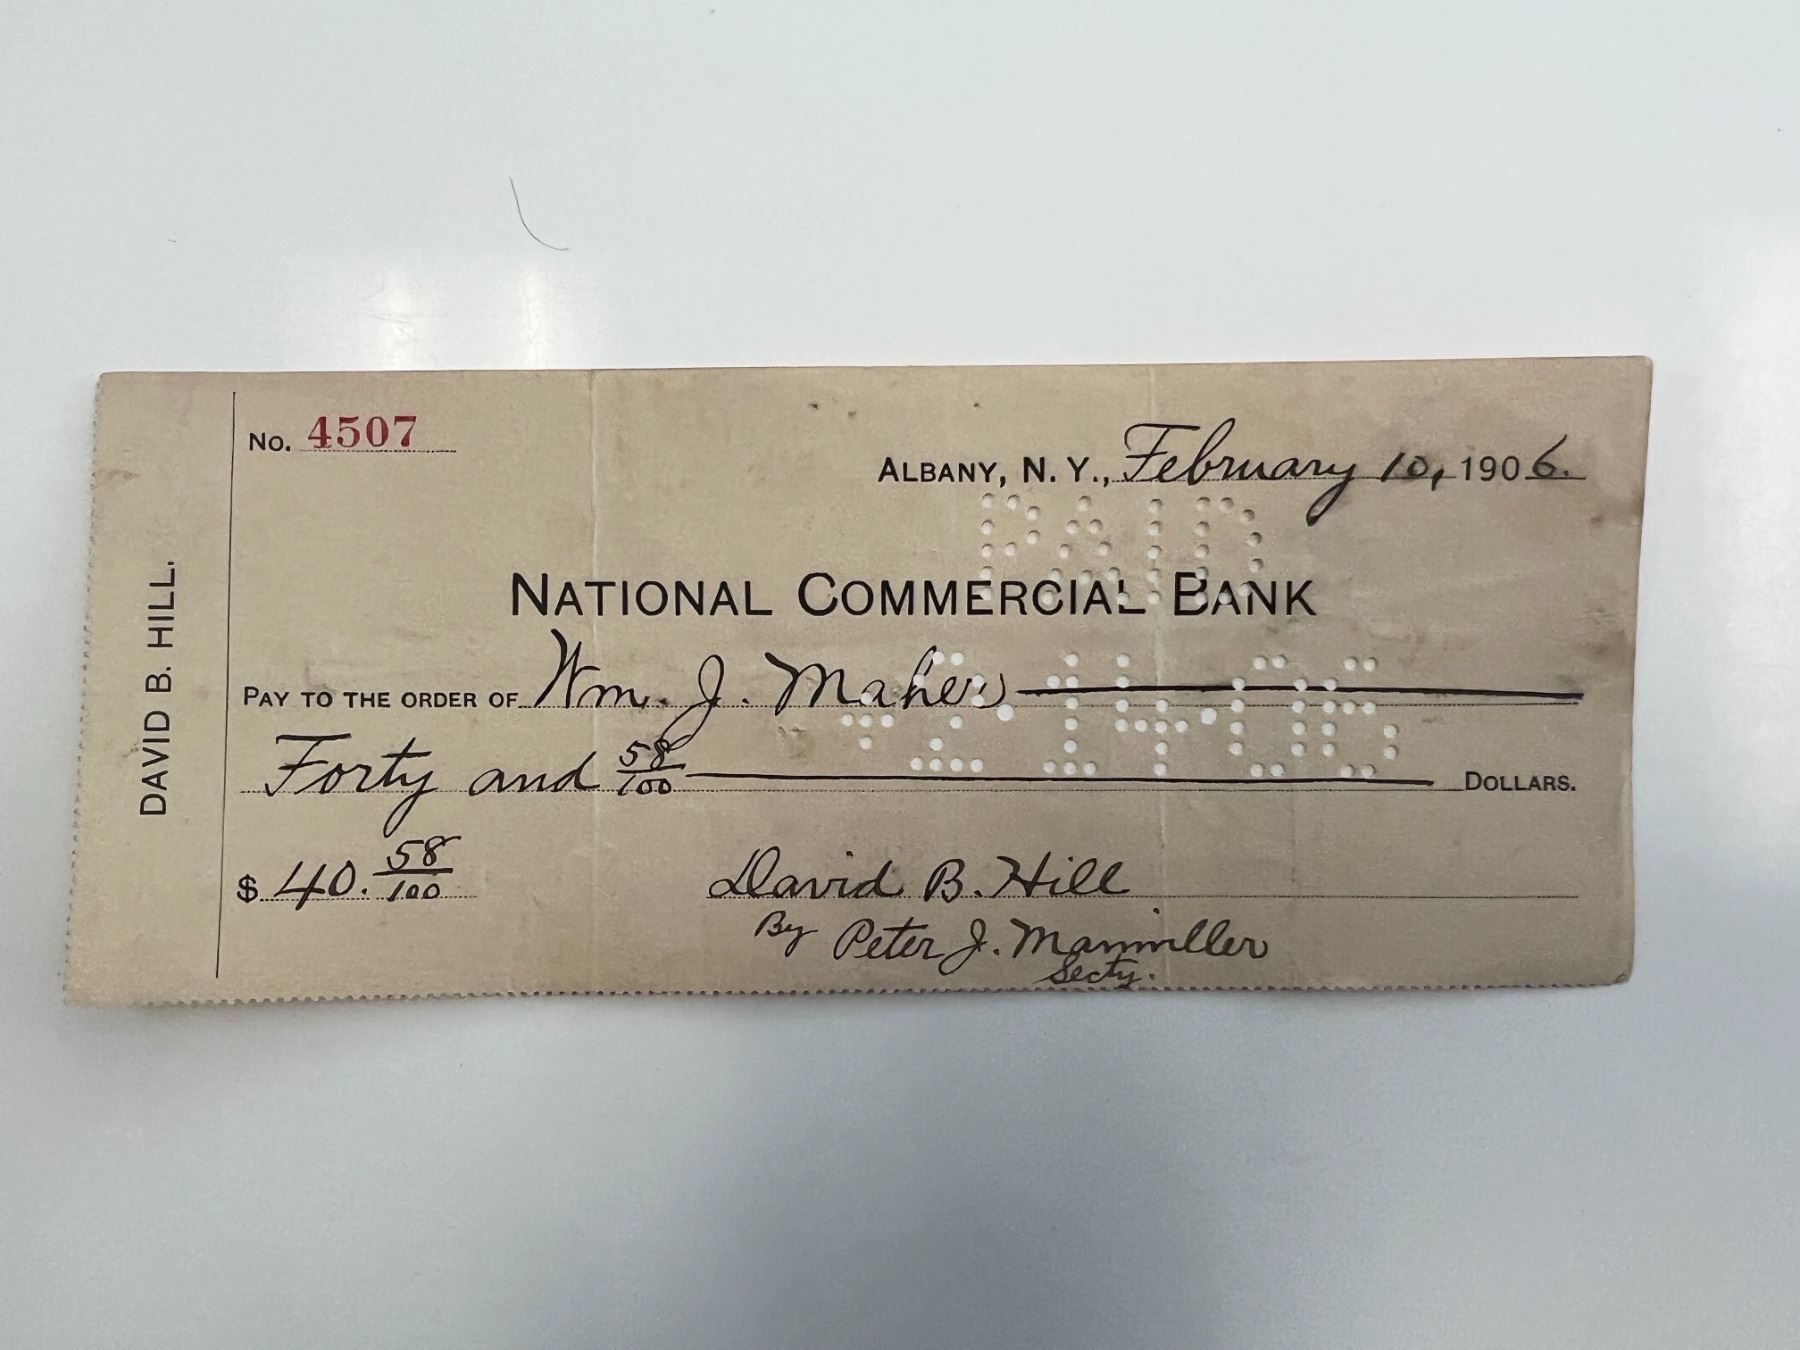 DAVID B. HILL.
No. 4507
ALBANY, N. Y., February 10, 1906.
PAID
NATIONAL COMMERCIAL BANK
PAY TO THE ORDER OF Wm. J. Maher
2-14-06
Forty and 58/100 DOLLARS.
$ 40. 58/100
David B. Hill
By Peter J. Manwiller
Secty.